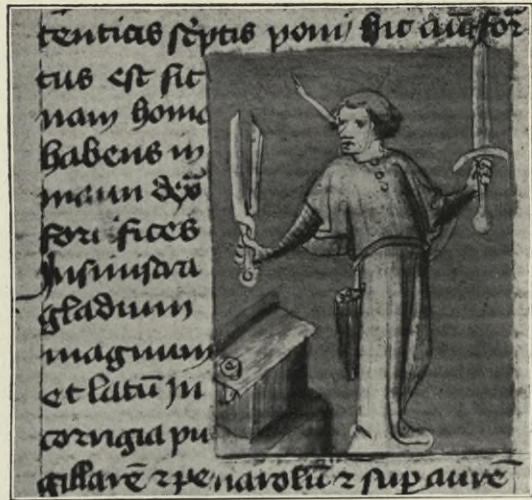 tenticas sc̄ptis poni sic aūt for̄
tus est sic
nam homo
habens in
manu dex̄
forfices
In sinistra
gladium
magnum
et latū In
corrigia pu
gillarē ⁊ pennarolū ⁊ sup aurē